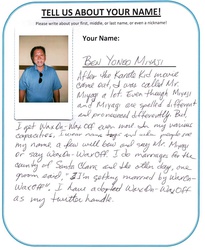 TELL US ABOUT YOUR NAME!
Please write about your first, middle, or last name, or even a nickname!
Your Name:
BEN YONEO MIYAJI
After the Karate Kid movie
came out, I was called Mr.
Miyagi a lot. Even though Miyagi
and Miyagi are spelled different
and pronounced differently. But
I get Wax On-Wax Off even now in my various
capacities. I when people see
my name a few will bow and say Mr. Miyagi
or say Wax On-Wax Off. I do marriages for the
county of Santa Clara and the other day, one
groom said, "I'm getting married by Wax On-
Wax Off". I have adopted Wax On-Wax Off
as my twitter handle.